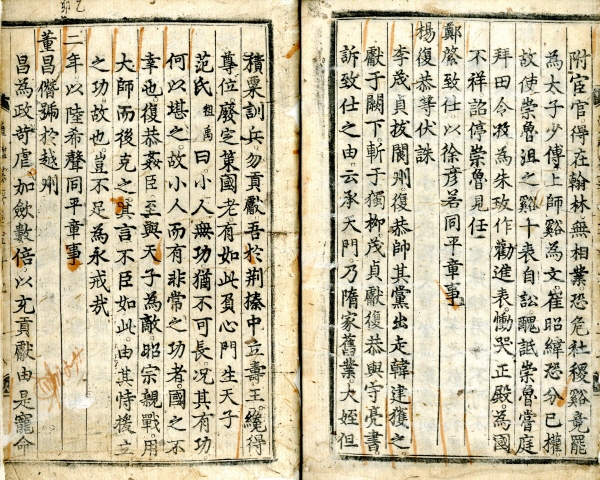 附宦官得在翰林無相業恐危社稷谿竟罷
為太子少傅上師谿為文崔昭緯恐分已權
故使崇魯沮之谿十表自訟醜詆崇魯嘗庭
拜田令孜為朱玫作勸進表慟哭正殿為國
不祥詔停崇魯見任
鄭綮致仕以徐彦若同平章事
楊復恭等伏誅
李茂貞拔閬州復恭帥其黨出走韓建獲之
獻于闕下斬于獨柳茂貞獻復恭與守亮書
訴致仕之由云承天門乃隋家舊業大姪但
積粟訓兵勿貢獻吾於荆榛中立壽王纔得
尊位廢定策國老有如此負心門生天子
范氏祖禹曰小人無功猶不可長况其有功
何以堪之故小人而有非常之功者國之不
幸也復恭姦臣至與天子為敵昭宗親戰用
大師而後克之其言不臣如此由其恃援立
之功故也豈不足為永戒哉
二年以陸希聲同平章事
董昌僭號於越州
昌為政苛虐如斂數倍以充貢獻由是寵命